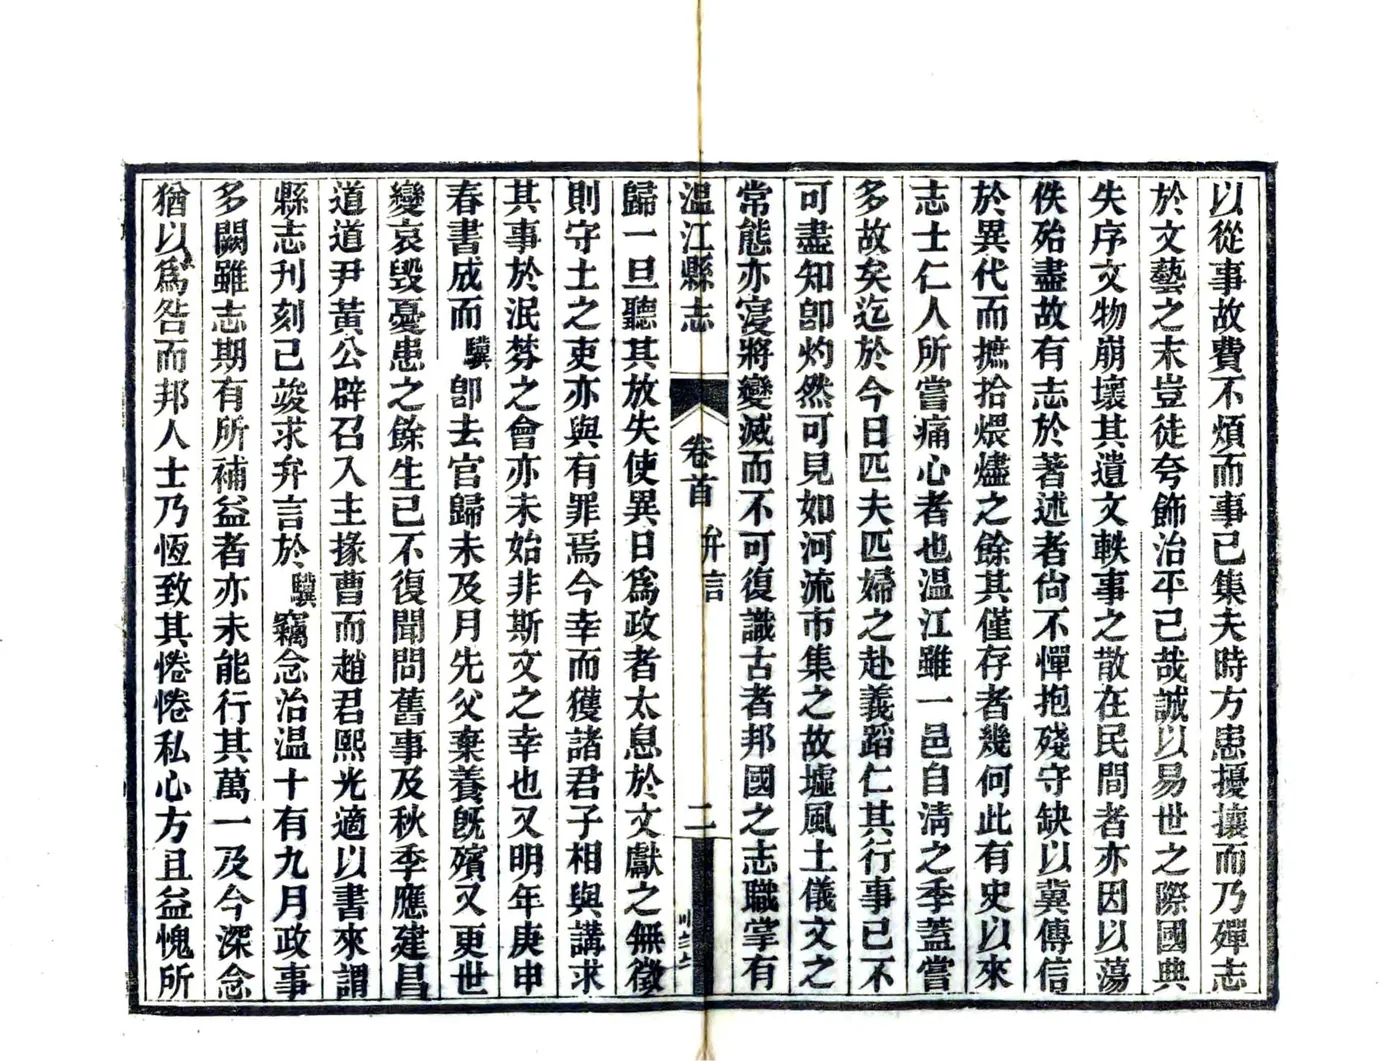 以從事故費不煩而事已集夫時方患擾攘而乃殫志
於文藝之末豈徒夸飾治平已哉誠以易世之際國典
失序文物崩壞其遺文軼事之散在民間者亦因以蕩
佚殆盡故有志於著述者尙不憚抱殘守缺以冀傳信
於異代而摭拾煨燼之餘其僅存者幾何此有史以來
志士仁人所嘗痛心者也溫江雖一邑自淸之季蓋嘗
多故矣迄於今日匹夫匹婦之赴義蹈仁其行事已不
可盡知卽灼然可見如河流市集之故墟風土儀文之
常態亦寖將變滅而不可復識古者邦國之志職掌有
溫江縣志
卷首
弁言
二
歸一旦聽其放失使異日爲政者太息於文獻之無徵
則守土之吏亦與有罪焉今幸而獲諸君子相與講求
其事於泯棼之會亦未始非斯文之幸也又明年庚申
春書成而驥卽去官歸未及月先父棄養旣殯又更世
變哀毀憂患之餘生已不復聞問舊事及秋季應建昌
道道尹黃公辟召入主掾曹而趙君熙光適以書來謂
縣志刊刻已竣求弁言於驥竊念治溫十有九月政事
多闕雖志期有所補益者亦未能行其萬一及今深念
猶以爲咎而邦人士乃恆致其惓惓私心方且益愧所